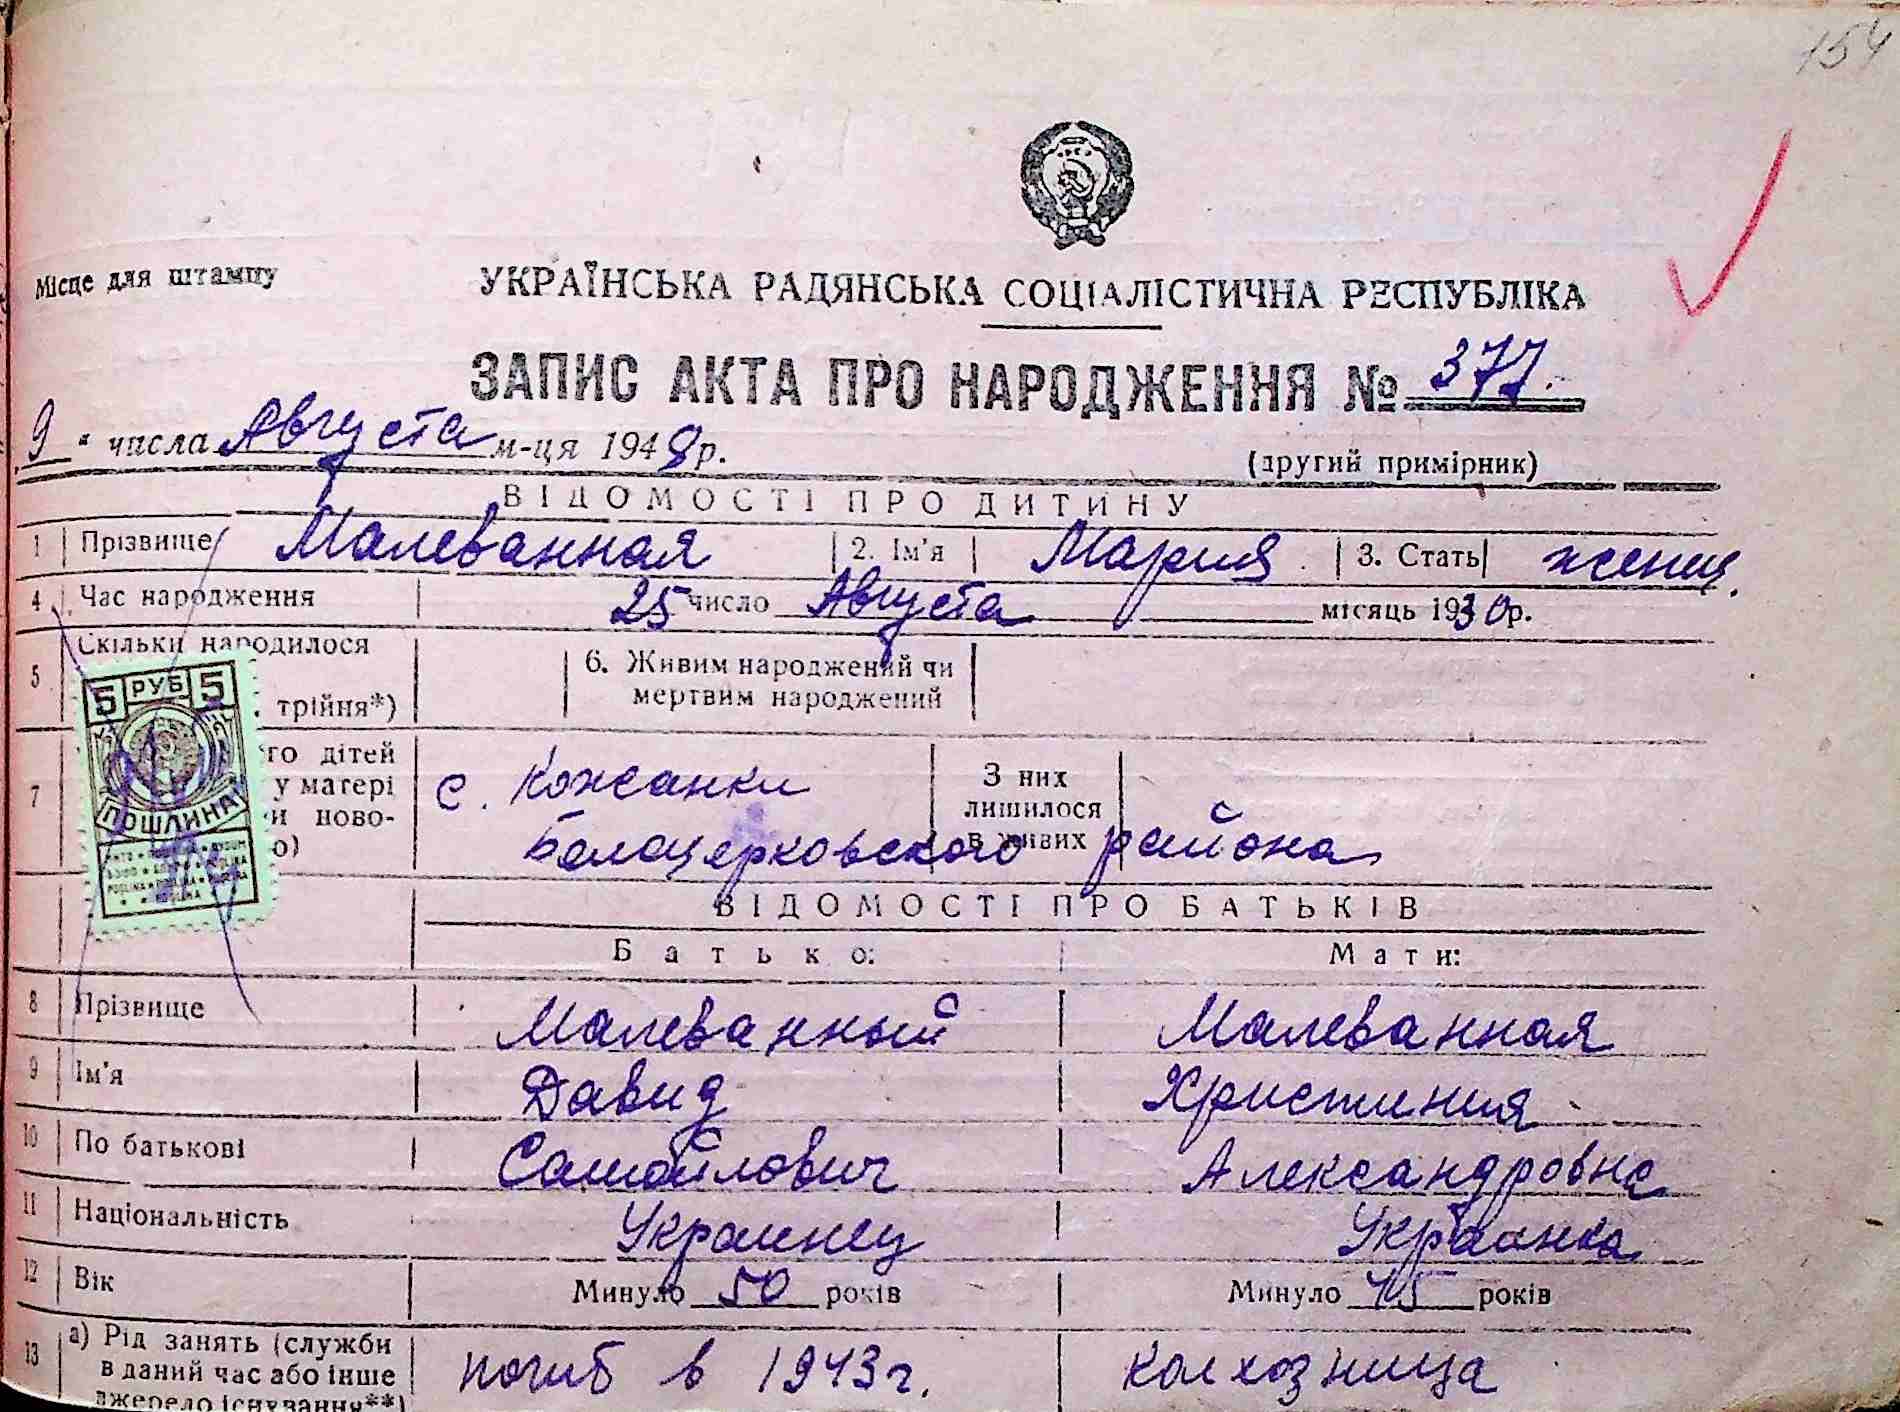 154
Місце для штампу
УКРАЇНСЬКА РАДЯНСЬКА СОЦІАЛІСТИЧНА РЕСПУБЛІКА
ЗАПИС АКТА ПРО НАРОДЖЕННЯ № 377.
9 " числа Августа м-ця 1948 р.
(другий примірник)
ВІДОМОСТІ ПРО ДИТИНУ
1 Прізвище Малеванная 2. Ім'я Мария 3. Стать женщ.
4 Час народження 25 число Августа місяць 1930 р.
5 Скільки народилося трійня*) 6. Живим народжений чи
мертвим народжений
5 РУБ 5
ПОШЛИНА
7 го дітей
у матері
и ново-
о)
с. Кожанки
Белоцерковского района
З них
лишилося
в живих
ВІДОМОСТІ ПРО БАТЬКІВ
Батько: Мати:
8 Прізвище Малеванный Малеванная
9 Ім'я Давид Христиния
10 По батькові Самойлович Александровна
11 Національність Украинец Украинка
12 Вік Минуло 50 років Минуло 45 років
13 а) Рід занять (служби
в даний час або інше
джерело існування**)
погиб в 1943 г. колхозница